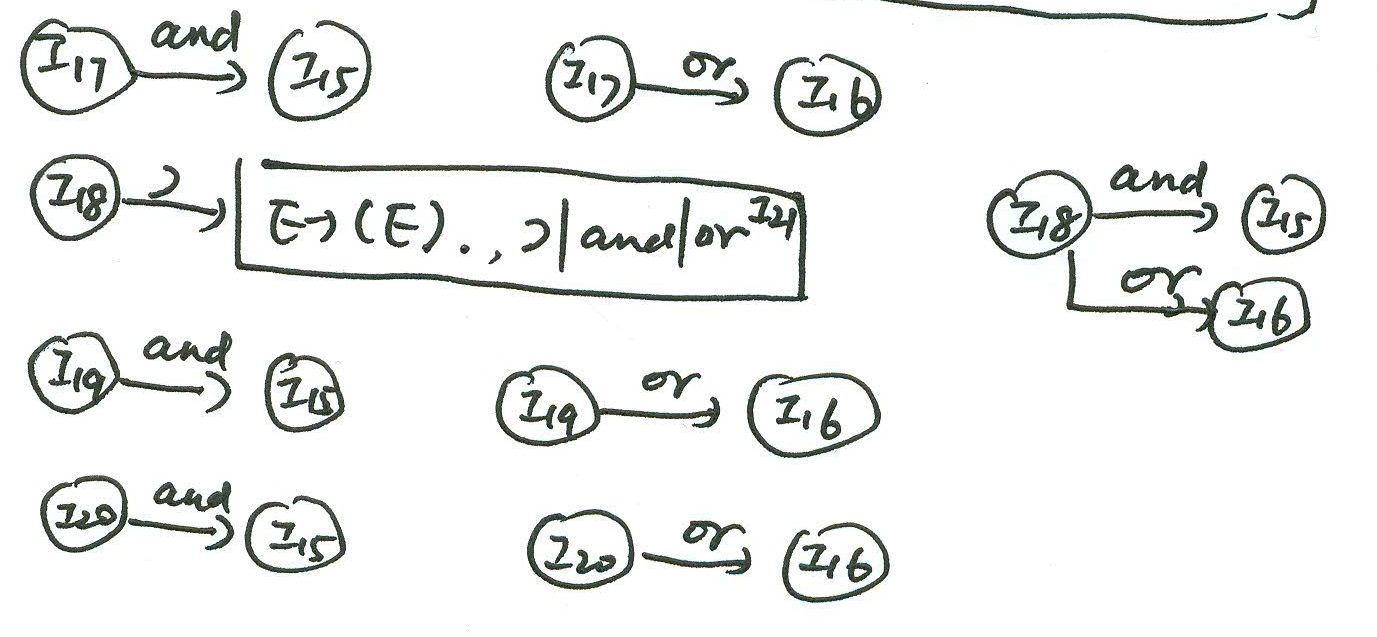 I17 and I15 I17 or I16
I18 ) E→(E)., )|and|or I21 I18 and I15
or I16
I19 and I15 I19 or I16
I20 and I15 I20 or I16